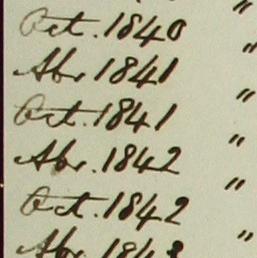 Oct. 1840 "
Apr 1841 "
Oct. 1841 "
Apr. 1842 "
Oct. 1842 "
Apr. 1843 "